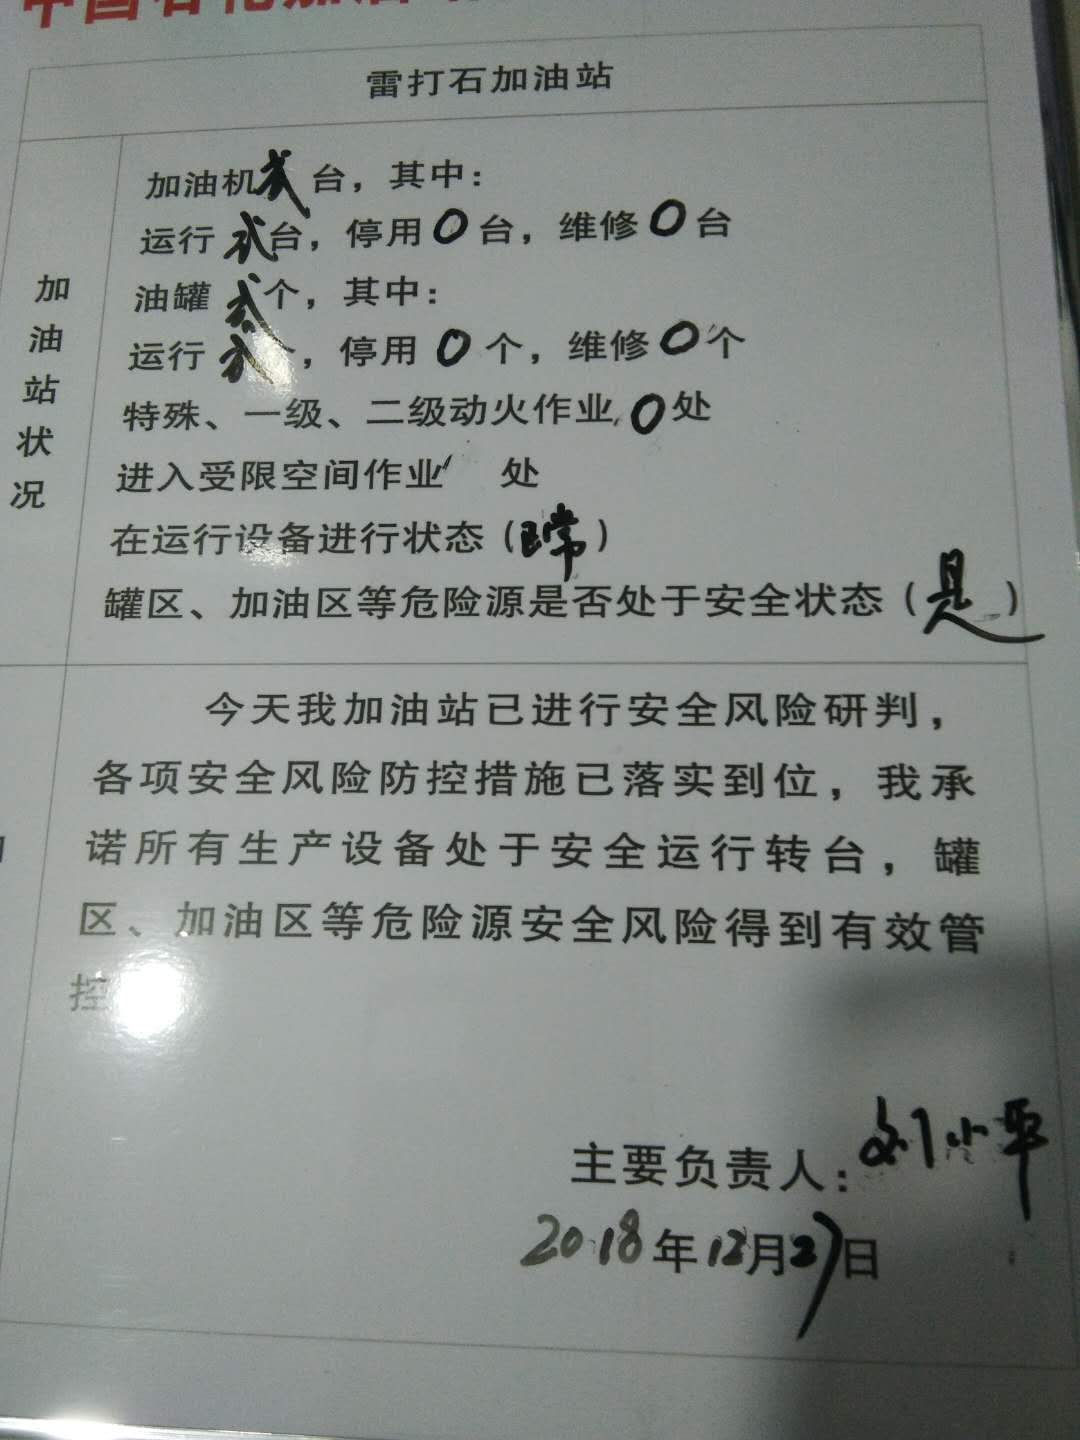 雷打石加油站
加油站状况
加油机贰台，其中：
运行贰台，停用0台，维修0台
油罐贰个，其中：
运行贰个，停用0个，维修0个
特殊、一级、二级动火作业0处
进入受限空间作业 处
在运行设备进行状态（正常）
罐区、加油区等危险源是否处于安全状态（是）
今天我加油站已进行安全风险研判，
各项安全风险防控措施已落实到位，我承
诺所有生产设备处于安全运行转台，罐
区、加油区等危险源安全风险得到有效管
控
主要负责人：刘小平
2018年12月27日